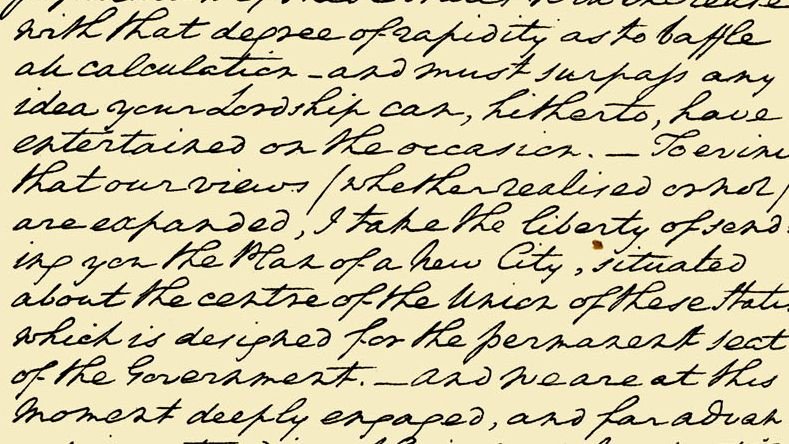 with that degree of rapidity as to baffle
all calculation – and must surpass any
idea your Lordship can, hitherto, have
entertained on the occasion. — To evin
that our views (whether realised or not)
are expanded, I take the liberty of send
ing you the Plan of a New City, situated
about the centre of the Union of these States
which is designed for the permanent seat
of the Government. — and we are at this
moment deeply engaged, and far advan